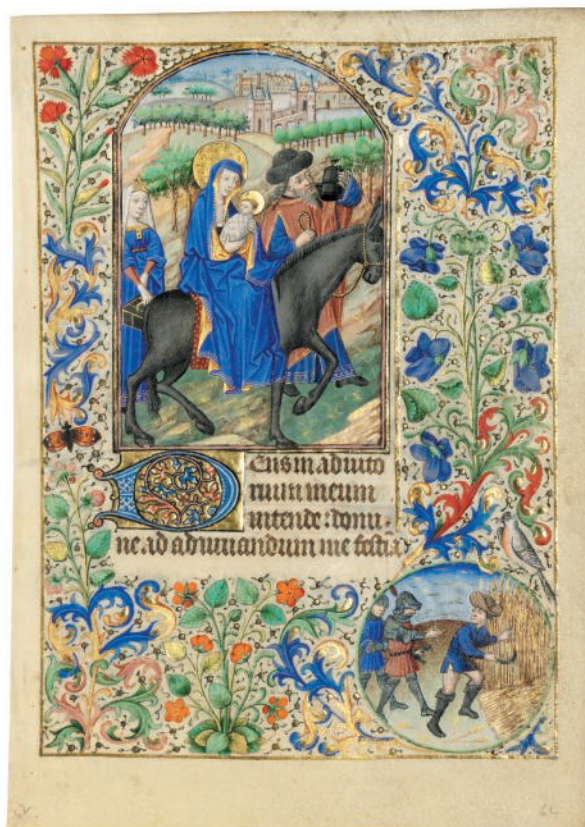 Deus in adiuto
rium meum
intende : domi-
ne ad adiuuandum me festi͂a